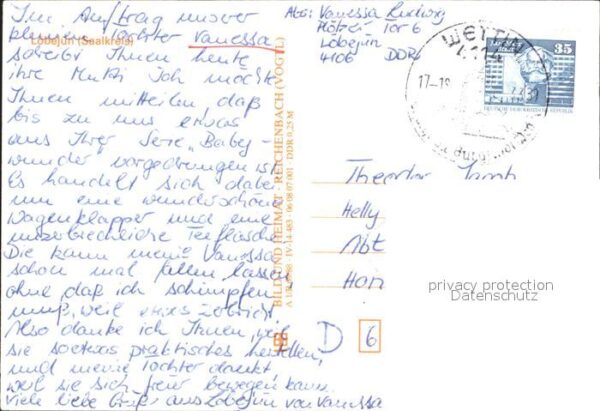 Im Auftrag unserer
kleinen Tochter Vanessa
Löbejün (Saalkreis)
schreibt Ihnen heute
ihre Mutti. Ich möchte
Ihnen mitteilen, daß
bis zu uns etwas
aus Ihrer Serie „Baby-
wunder" vorgedrungen ist.
Es handelt sich dabei
um eine wunderschöne
Wagenklapper und eine
unzerbrechliche Teeflasche
Die kann meine Vanessa
schon mal fallen lassen
ohne daß ich schimpfen
muß, weil zerbricht.
Also danke ich Ihnen, weil
sie praktisches herstellen,
und meine Tochter dankt,
weil sie sich freier bewegen kann.
Viele liebe Grüße aus Löbejün von Vanessa
BILD UND HEIMAT · REICHENBACH (VOGTL)
IV-14-483 · 06 08 07 001 · DDR 0,25 M
Abs: Vanessa Ludwig
Tor 6
Löbejün
4106 DDR
WETTIN
4114
17-18
35
DEUTSCHE DEMOKRATISCHE REPUBLIK
Theodor
Helly
Abt
D 6
privacy protection
Datenschutz